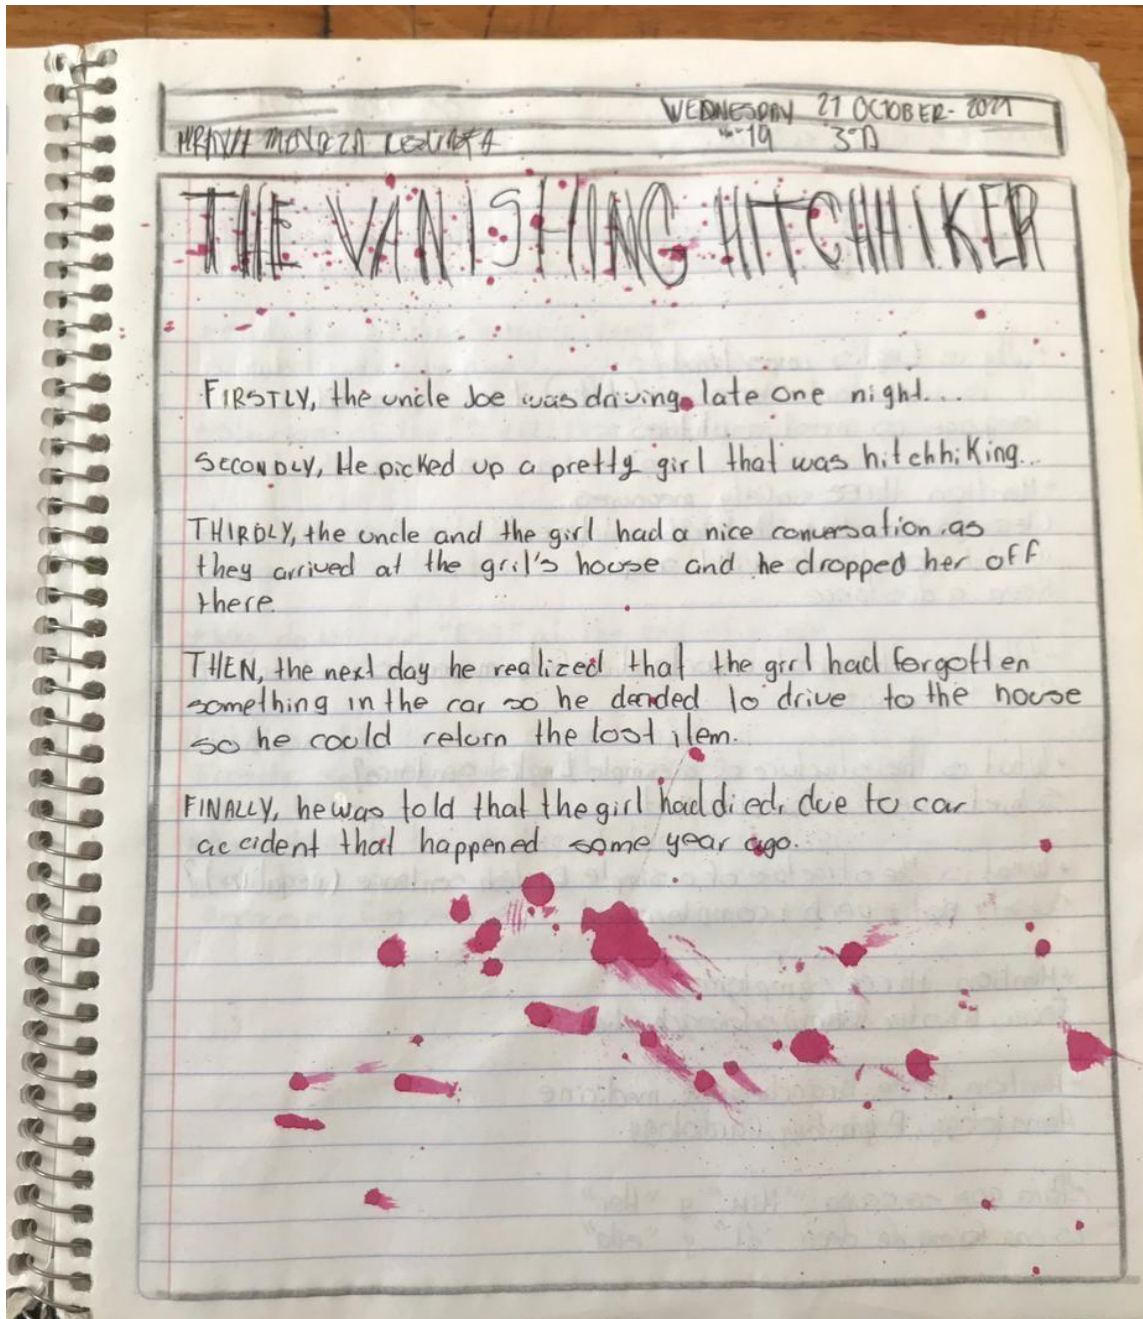 WEDNESDAY 27 OCTOBER - 2021
19 3°A
THE VANISHING HITCHHIKER
FIRSTLY, the uncle Joe was driving late one night...
SECONDLY, He picked up a pretty girl that was hitchhiking...
THIRDLY, the uncle and the girl had a nice conversation as
they arrived at the gril's house and he dropped her off
there.
THEN, the next day he realized that the girl had forgotten
something in the car so he decided to drive to the house
so he could return the lost item.
FINALLY, he was told that the girl had died, due to car
accident that happened some year ago.